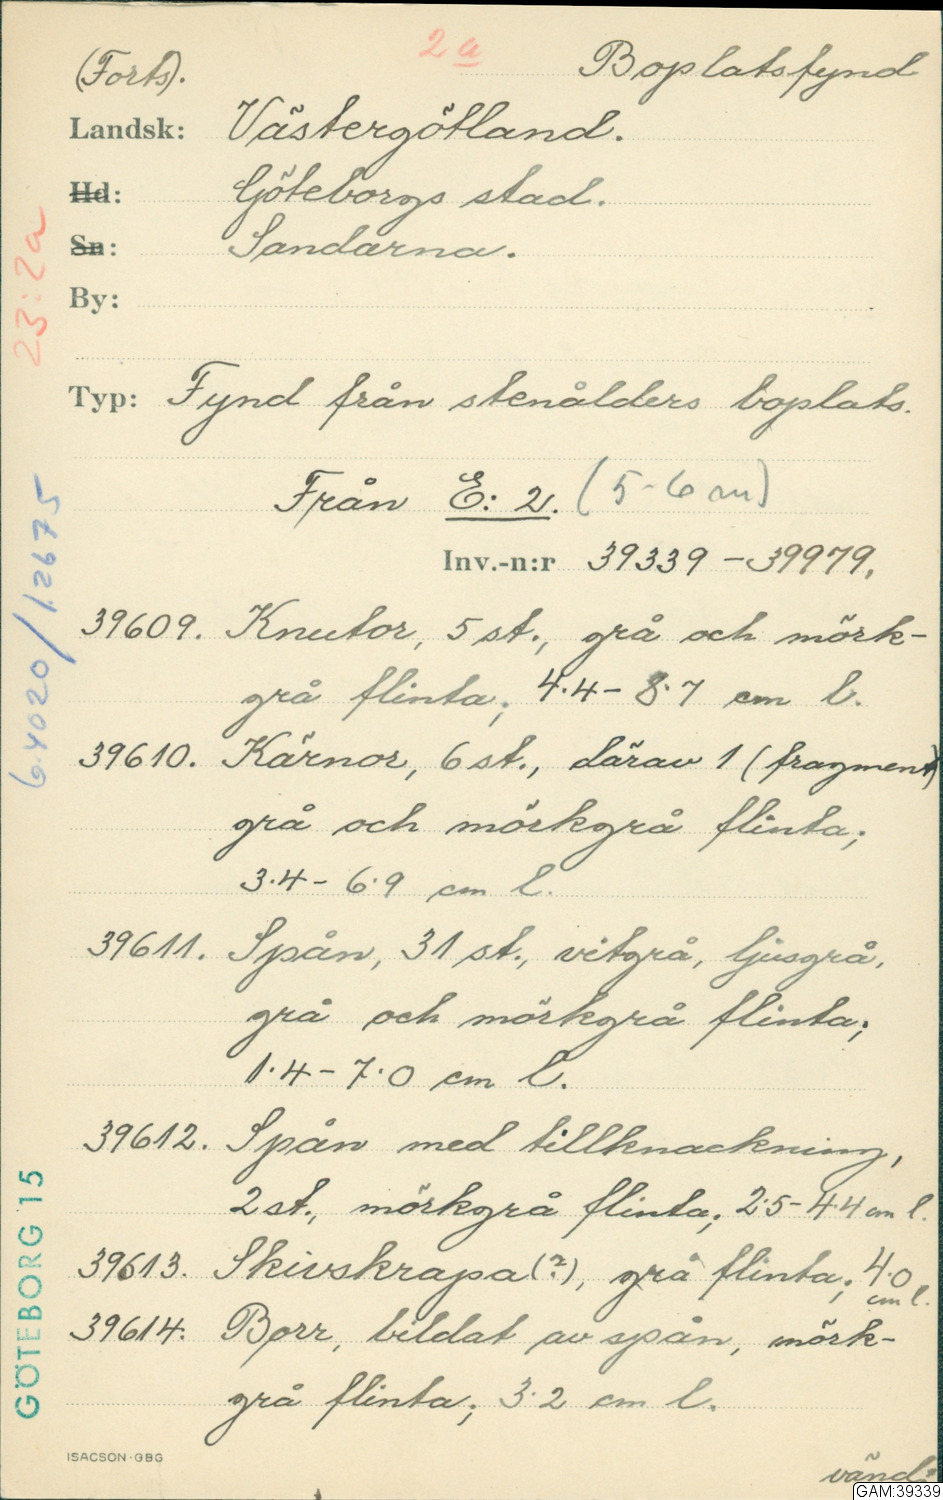 2a
(Forts). Boplatsfynd
Landsk: Västergötland.
Hd: Göteborgs stad.
Sn: Sandarna.
By:
Typ: Fynd från stenålders boplats.
Från E: 2. (5-6 m)
Inv.-n:r 39339 - 39979.
39609. Knutor, 5 st., grå och mörk-
grå flinta; 4.4 - 8.7 cm l.
39610. Kärnor, 6 st., därav 1 (fragment)
grå och mörkgrå flinta;
3.4 - 6.9 cm l.
39611. Spån, 31 st., vitgrå, ljusgrå,
grå och mörkgrå flinta;
1.4 - 7.0 cm l.
39612. Spån med tillknackning,
2 st., mörkgrå flinta; 2.5 - 4.4 cm l.
39613. Skivskrapa (?), grå flinta; 4.0
cm l.
39614. Borr, bildat av spån, mörk-
grå flinta; 3.2 cm l.
ISACSON·GBG
vänd.
23:2a
6.4020/1.2675
GÖTEBORG 15
GAM:39339